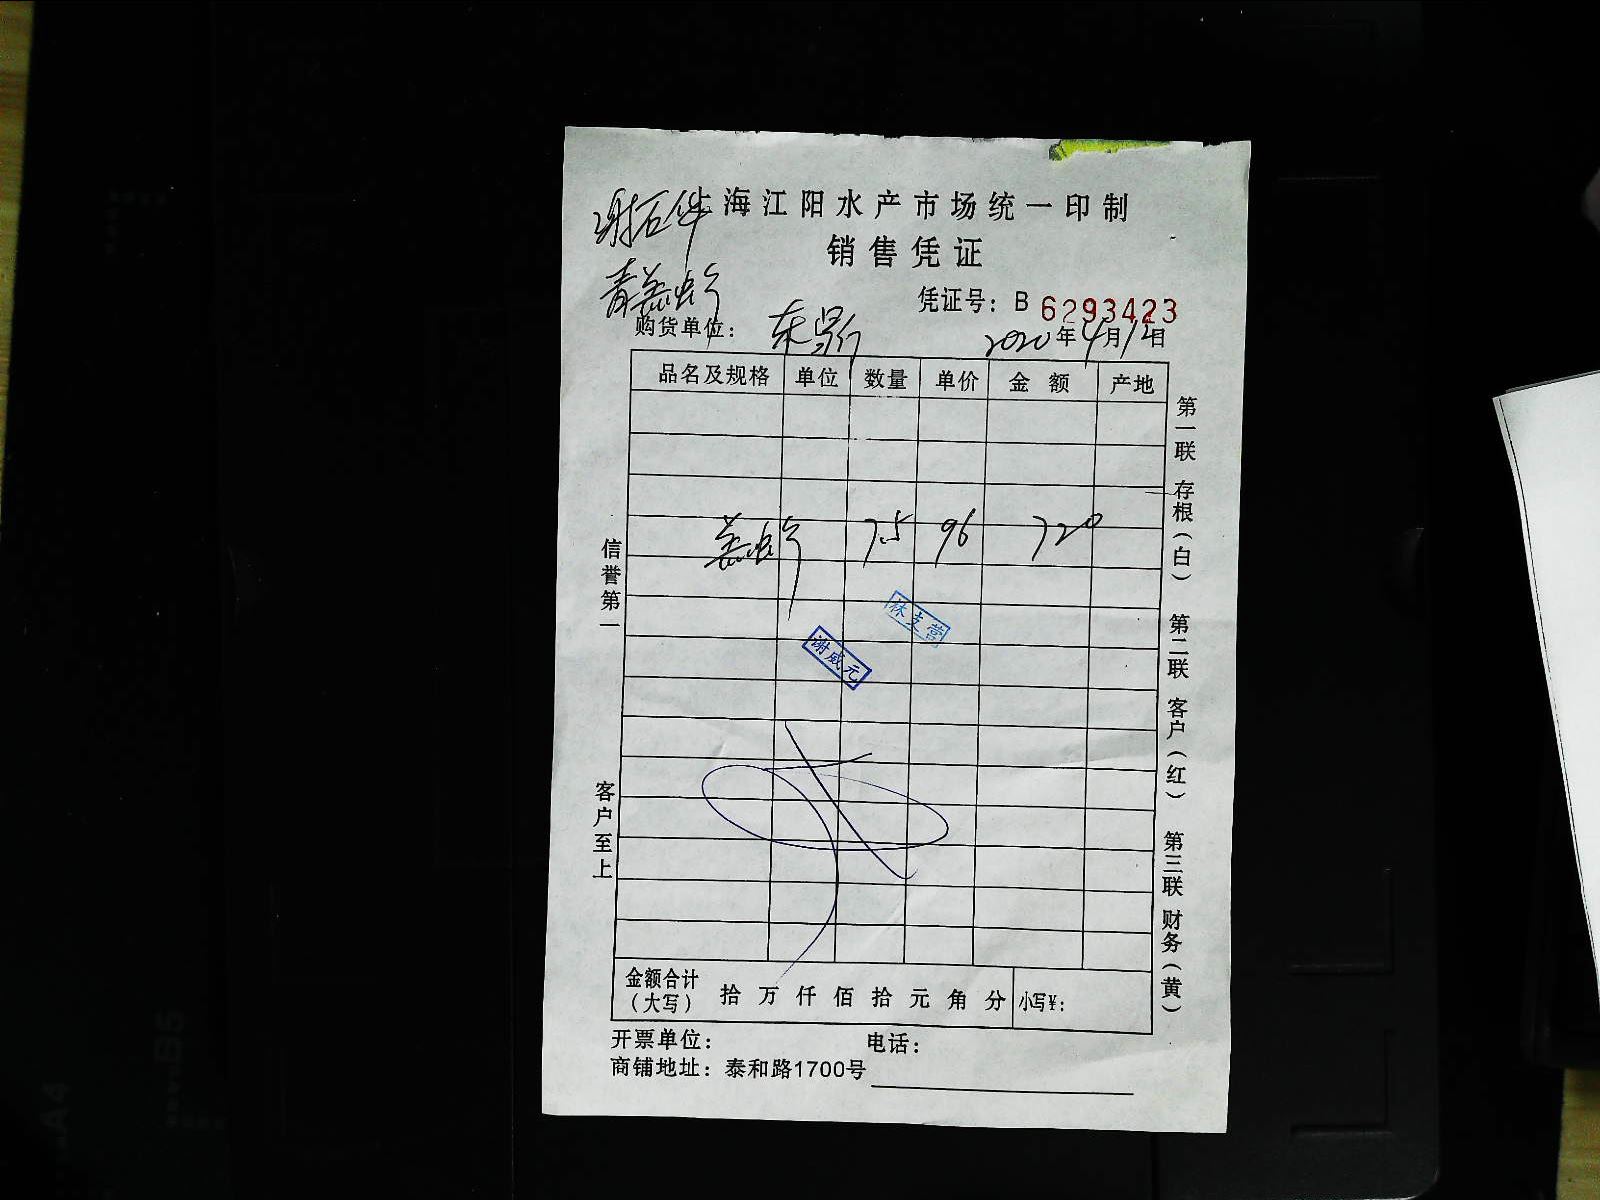 上海江阳水产市场统一印制
销售凭证
凭证号：B 6293423
购货单位：
2020年4月12日
品名及规格 单位 数量 单价 金额 产地
7.5 96 720
林支营
谢威元
信誉第一
客户至上
第一联 存根（白） 第二联 客户（红） 第三联 财务（黄）
金额合计（大写） 拾 万 仟 佰 拾 元 角 分 小写¥：
开票单位： 电话：
商铺地址：泰和路1700号